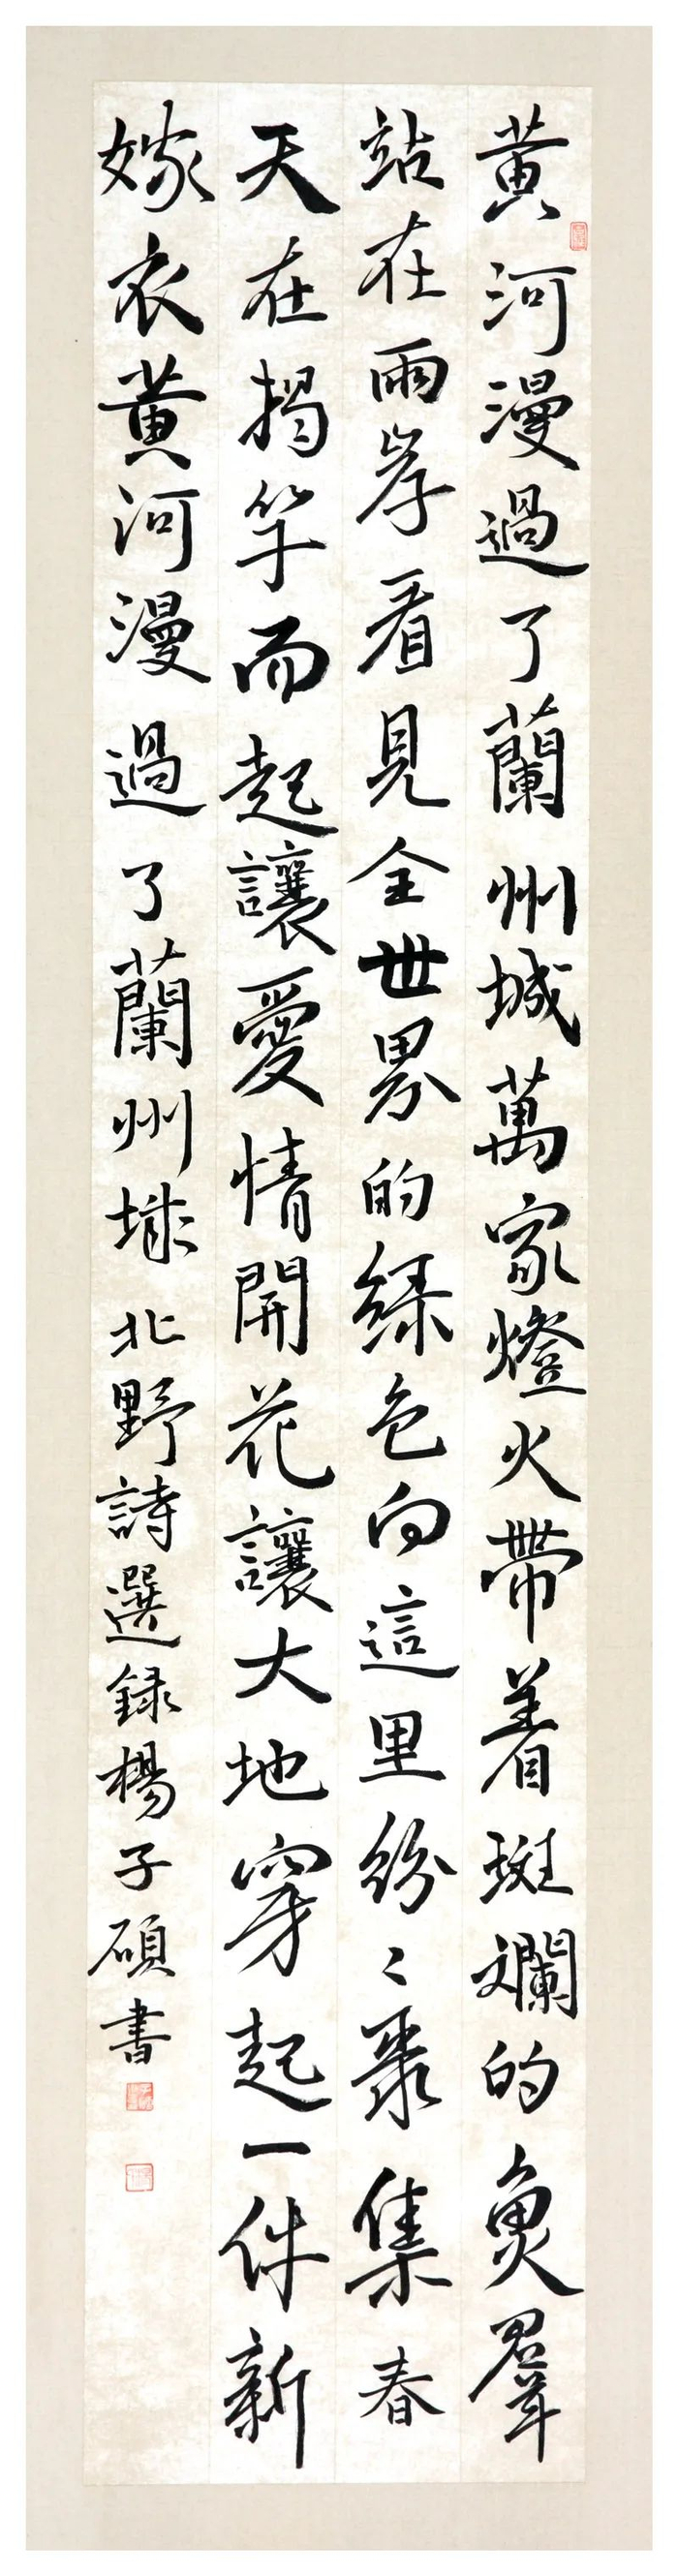 黃河漫過了蘭州城萬家燈火帶着斑斕的魚羣
站在兩岸看見全世界的綠色向這里紛〻聚集春
天在揭竿而起讓愛情開花讓大地穿起一件新
嫁衣黃河漫過了蘭州城北野詩選錄楊子碩書